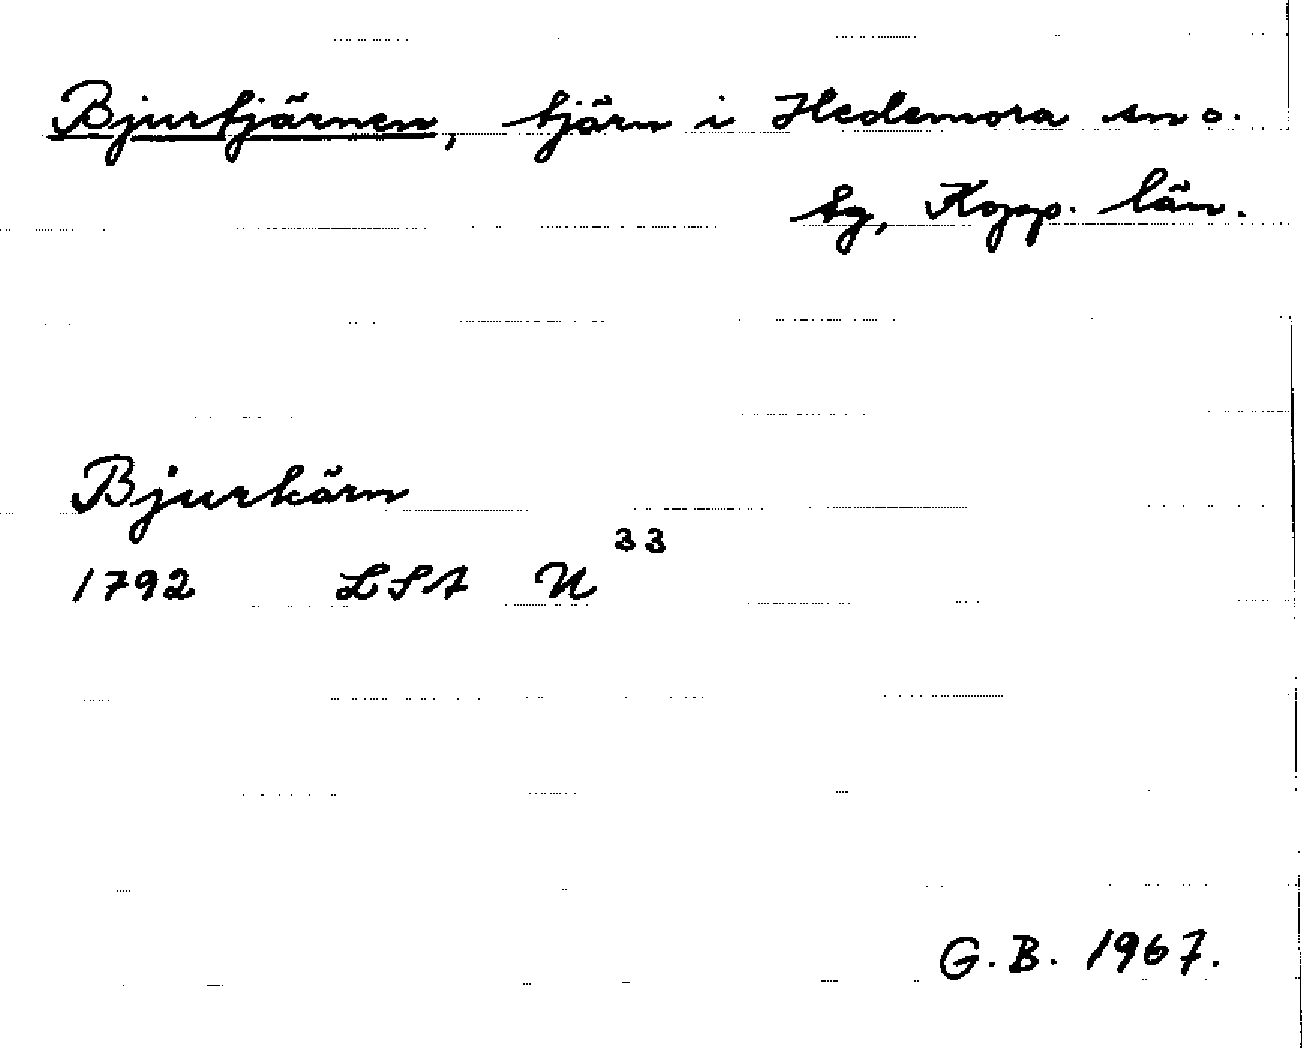 Bjurtjärnen, tjärn i Hedemora sn o.
tg, Kopp. län.
Bjurkärn
1792 LSA U 33
G. B. 1967.